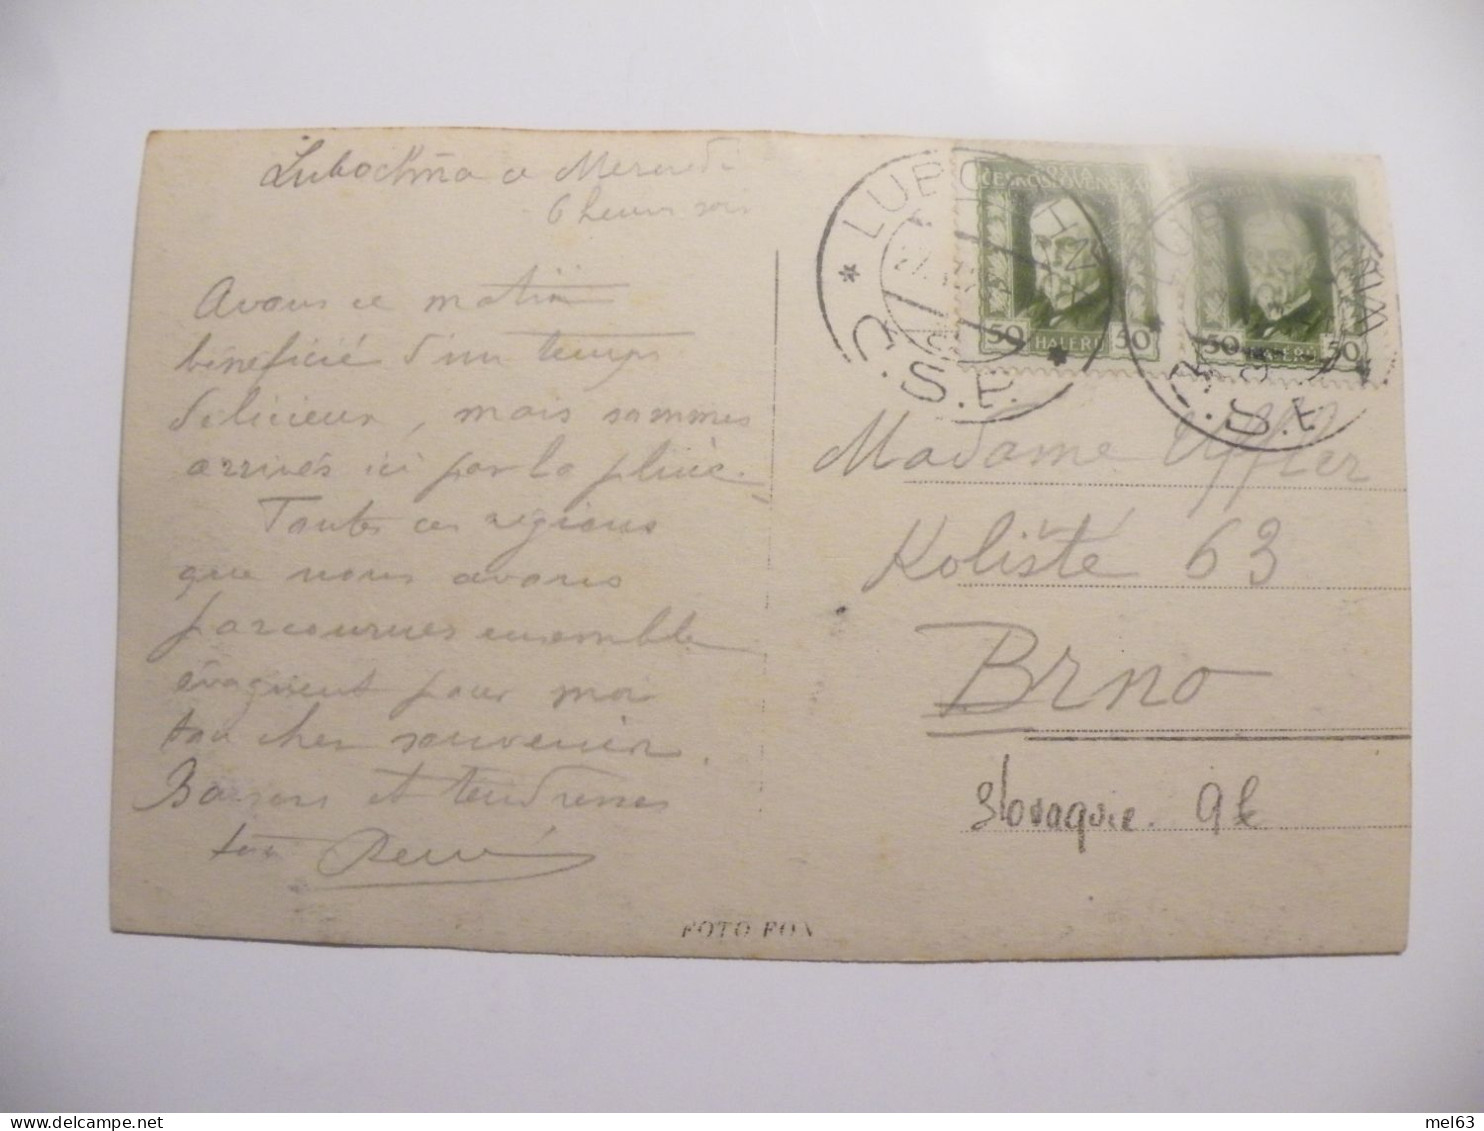 Lubochna ce Mercredi
6 heures soir
Avons ce matin
beneficié d'un temps
delicieux, mais sommes
arrivés ici par la pluie.
Toutes ces régions
que nous avons
parcourues ensemble
évoquent pour moi
ton cher souvenir.
Baisers et tendresses
ton René
FOTO FON
* LUBOCHŇA *
Č.S.P.
ČESKOSLOVENSKÁ
50 HALÉŘŮ 50
50 HALÉŘŮ 50
Č.S.P.
Madame Uffler
Koliště 63
Brno
Slovaquie. 9€
mel63